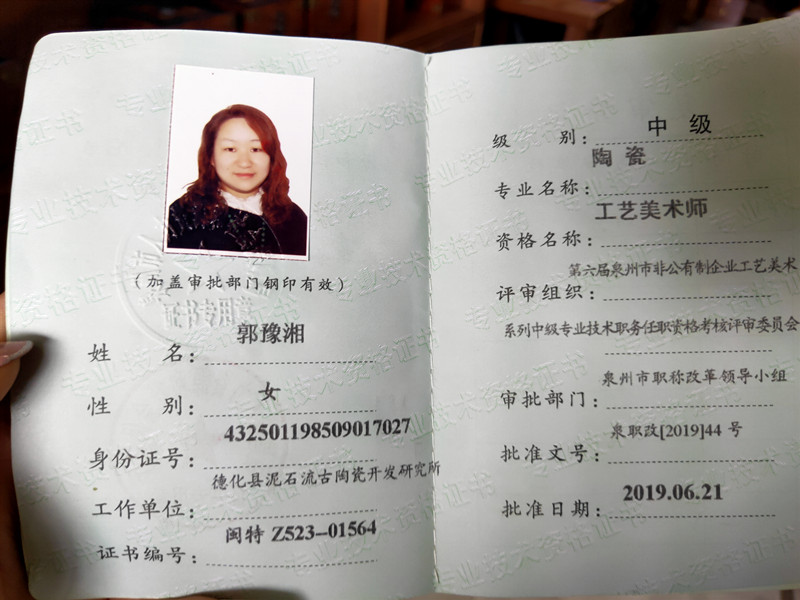 (加盖审批部门钢印有效)
证书专用
姓 名: 郭豫湘
性 别: 女
身份证号: 432501198509017027
工作单位: 德化县泥石流古陶瓷开发研究所
证书编号: 闽特 Z523-01564
级 别: 中 级
专业名称: 陶 瓷
资格名称: 工艺美术师
评审组织: 第六届泉州市非公有制企业工艺美术
系列中级专业技术职务任职资格考核评审委员会
审批部门: 泉州市职称改革领导小组
批准文号: 泉职改[2019]44 号
批准日期: 2019.06.21
专业技术资格证书